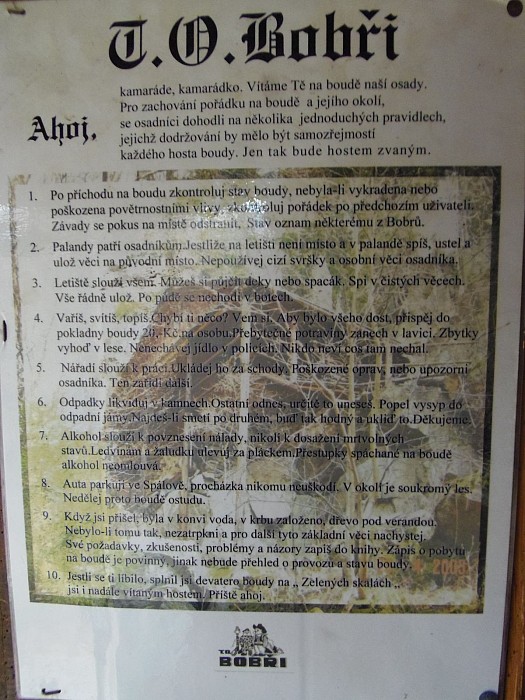 T.O.Bobři
kamaráde, kamarádko. Vítáme Tě na boudě naší osady.
Pro zachování pořádku na boudě a jejího okolí,
Ahoj, se osadníci dohodli na několika jednoduchých pravidlech,
jejichž dodržování by mělo být samozřejmostí
každého hosta boudy. Jen tak bude hostem zvaným.
1. Po příchodu na boudu zkontroluj stav boudy, nebyla-li vykradena nebo
poškozena povětrnostními vlivy, zkontroluj pořádek po předchozím uživateli.
Závady se pokus na místě odstranit. Stav oznam některému z Bobrů.
2. Palandy patří osadníkům.Jestliže na letišti není místo a v palandě spíš, ustel a
ulož věci na původní místo. Nepoužívej cizí svršky a osobní věci osadníka.
3. Letiště slouží všem. Můžeš si půjčit deky nebo spacák. Spi v čistých věcech.
Vše řádně ulož. Po půdě se nechodí v botech.
4. Vaříš, svítíš, topíš.Chybí ti něco? Vem si. Aby bylo všeho dost, přispěj do
pokladny boudy 20,-Kč.na osobu.Přebytečné potraviny zanech v lavici. Zbytky
vyhoď v lese. Nenechávej jídlo v policích. Nikdo neví cos tam nechal.
5. Nářadí slouží k práci.Ukládej ho za schody. Poškozené oprav, nebo upozorni
osadníka. Ten zařídí další.
6. Odpadky likviduj v kamnech.Ostatní odnes, určitě to uneseš. Popel vysyp do
odpadní jámy.Najdeš-li smetí po druhém, buď tak hodný a ukliď to.Děkujeme.
7. Alkohol slouží k povznesení nálady, nikoli k dosažení mrtvolných
stavů.Ledvinám a žaludku ulevuj za pláckem.Přestupky spáchané na boudě
alkohol neomlouvá.
8. Auta parkují ve Spálově, procházka nikomu neuškodí. V okolí je soukromý les.
Nedělej proto boudě ostudu.
9. Když jsi přišel, byla v konvi voda, v krbu založeno, dřevo pod verandou.
Nebylo-li tomu tak, nezatrpkni a pro další tyto základní věci nachystej.
Své požadavky, zkušenosti, problémy a názory zapiš do knihy. Zápis o pobytu
na boudě je povinný, jinak nebude přehled o provozu a stavu boudy.
10. Jestli se ti líbilo, splnil jsi devatero boudy na „ Zelených skalách „
jsi i nadále vítaným hostem. Příště ahoj.
T.O.
BOBŘI